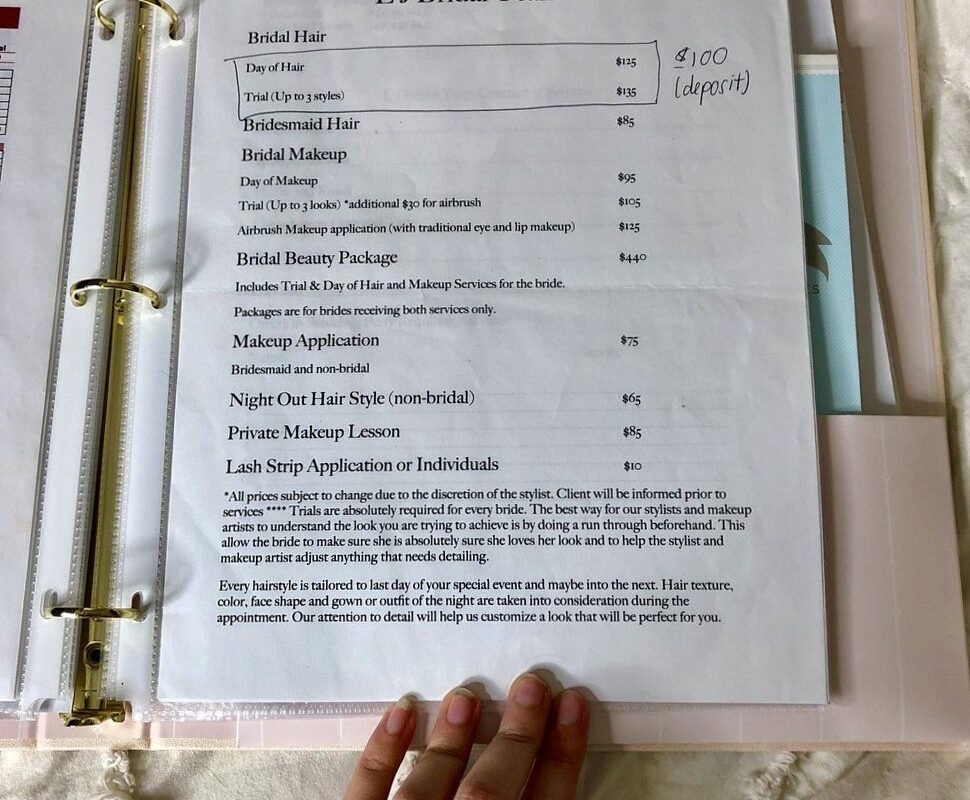 Bridal Hair
Day of Hair $125
Trial (Up to 3 styles) $135
$100
(deposit)
Bridesmaid Hair $85
Bridal Makeup
Day of Makeup $95
Trial (Up to 3 looks) *additional $30 for airbrush $105
Airbrush Makeup application (with traditional eye and lip makeup) $125
Bridal Beauty Package $440
Includes Trial & Day of Hair and Makeup Services for the bride.
Packages are for brides receiving both services only.
Makeup Application $75
Bridesmaid and non-bridal
Night Out Hair Style (non-bridal) $65
Private Makeup Lesson $85
Lash Strip Application or Individuals $10
*All prices subject to change due to the discretion of the stylist. Client will be informed prior to
services **** Trials are absolutely required for every bride. The best way for our stylists and makeup
artists to understand the look you are trying to achieve is by doing a run through beforehand. This
allow the bride to make sure she is absolutely sure she loves her look and to help the stylist and
makeup artist adjust anything that needs detailing.
Every hairstyle is tailored to last day of your special event and maybe into the next. Hair texture,
color, face shape and gown or outfit of the night are taken into consideration during the
appointment. Our attention to detail will help us customize a look that will be perfect for you.